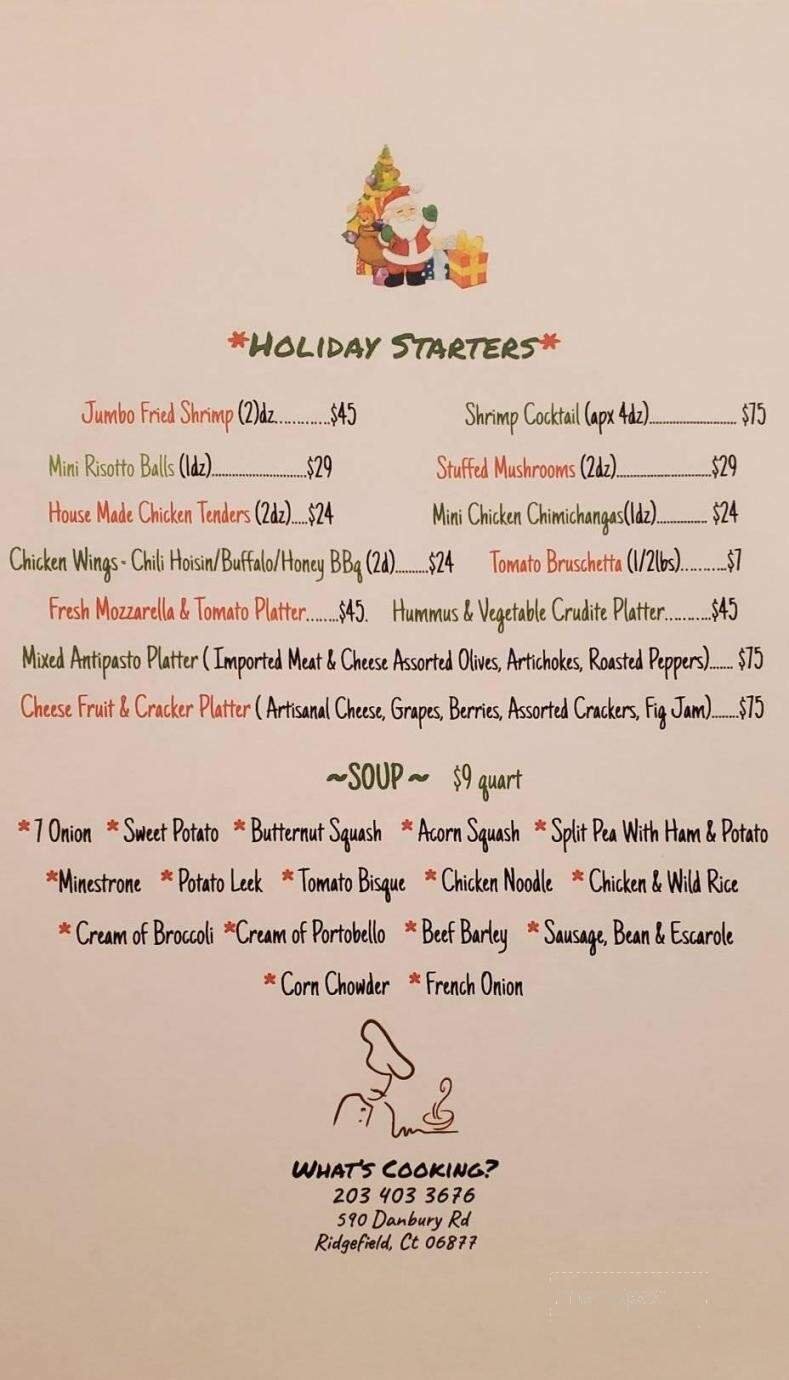 *Holiday Starters*
Jumbo Fried Shrimp (2)dz............$45 Shrimp Cocktail (apx 4dz)........................ $75
Mini Risotto Balls (1dz)..........................$29 Stuffed Mushrooms (2dz)..........................$29
House Made Chicken Tenders (2dz).....$24 Mini Chicken Chimichangas(1dz).............. $24
Chicken Wings - Chili Hoisin/Buffalo/Honey BBq (2d).........$24 Tomato Bruschetta (1/2lbs)...........$7
Fresh Mozzarella & Tomato Platter........$45. Hummus & Vegetable Crudite Platter...........$45
Mixed Antipasto Platter ( Imported Meat & Cheese Assorted Olives, Artichokes, Roasted Peppers)....... $75
Cheese Fruit & Cracker Platter ( Artisanal Cheese, Grapes, Berries, Assorted Crackers, Fig Jam)........$75
~SOUP~ $9 quart
*7 Onion *Sweet Potato *Butternut Squash *Acorn Squash *Split Pea With Ham & Potato
*Minestrone *Potato Leek *Tomato Bisque *Chicken Noodle *Chicken & Wild Rice
*Cream of Broccoli *Cream of Portobello *Beef Barley *Sausage, Bean & Escarole
*Corn Chowder *French Onion
What's Cooking?
203 403 3676
590 Danbury Rd
Ridgefield, Ct 06877